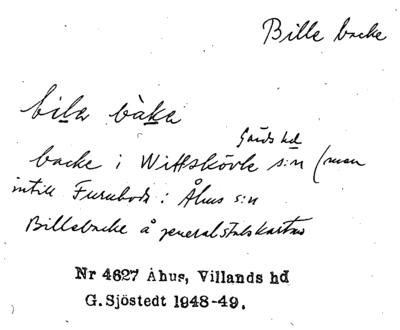 Bille backe
bila bàka
Gärds hd
backe i Wittskövle s:n (men
intill Furuboda i Åhus s:n
Billebacke å generalstabskartan
Nr 4627 Åhus, Villands hd
G. Sjöstedt 1948-49.